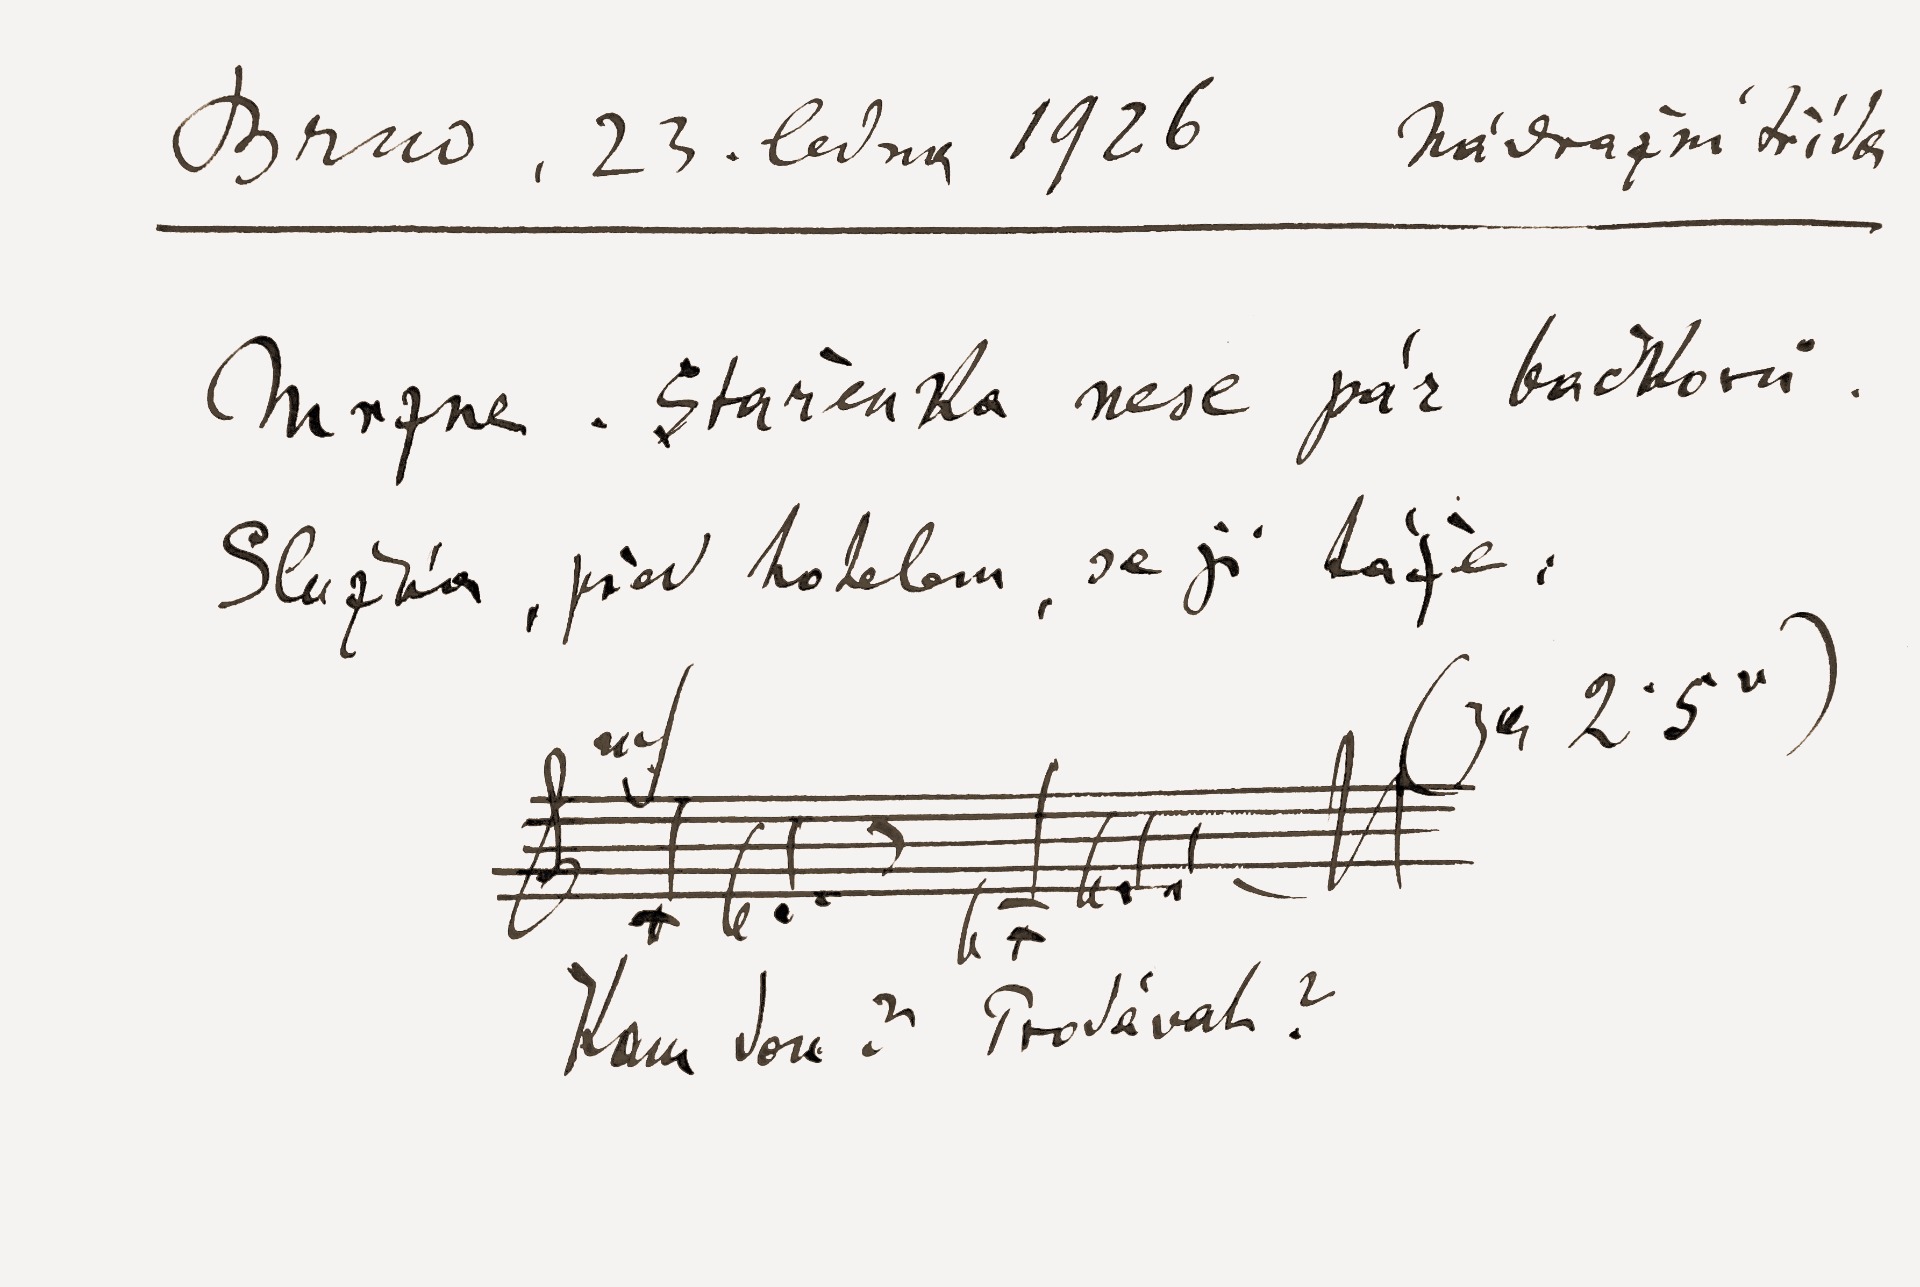 Brno, 23. ledna 1926 Nádražní třída
Mrzne. Stařenka nese pár bačkorů.
Služka, před hotelem, se jí táže:
(za 2·5")
mf
Kam jdou? Prodávat?